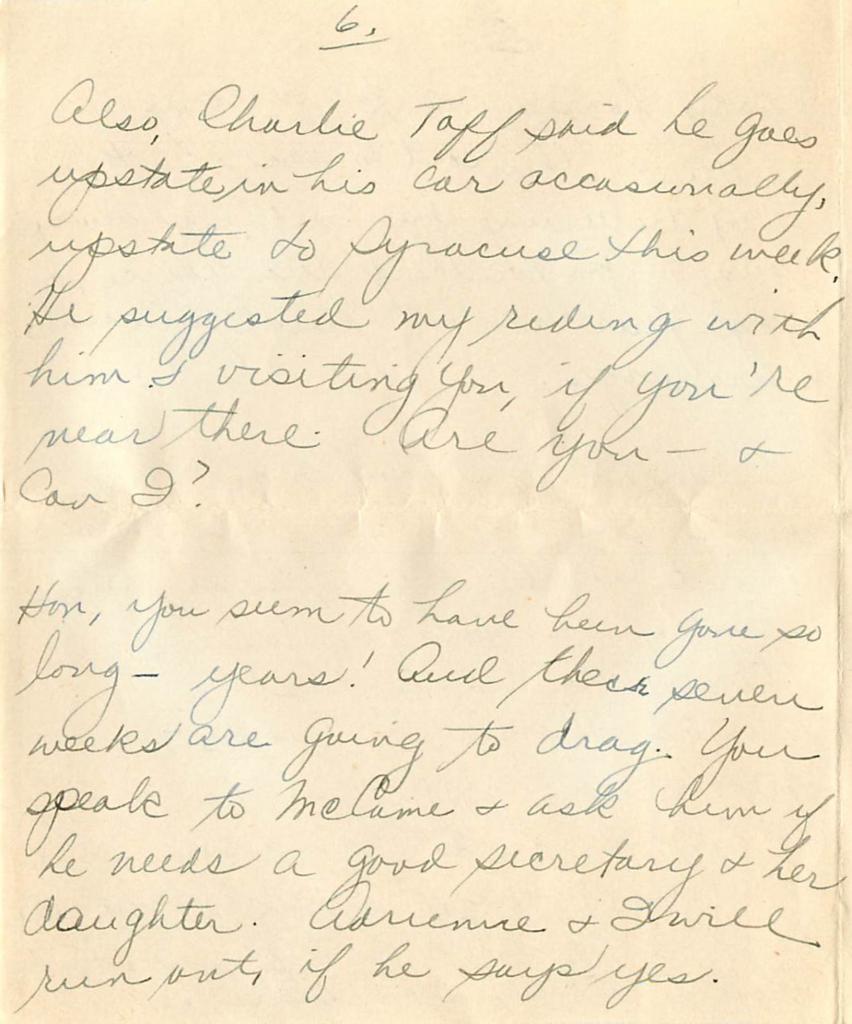 6.
Also, Charlie Taff said he goes
upstate in his car occasionally,
upstate to Syracuse this week.
He suggested my riding with
him & visiting you, if you're
near there. Are you – &
Can I?
Hon, you seem to have been gone so
long – years! And these seven
weeks are going to drag. You
speak to McCame & ask him if
he needs a good secretary & her
daughter. Adrienne & I will
run out, if he says yes.